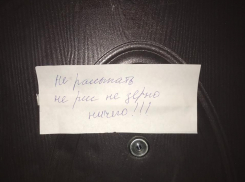 Не рассыпать
не рис не зерно
ничего!!!